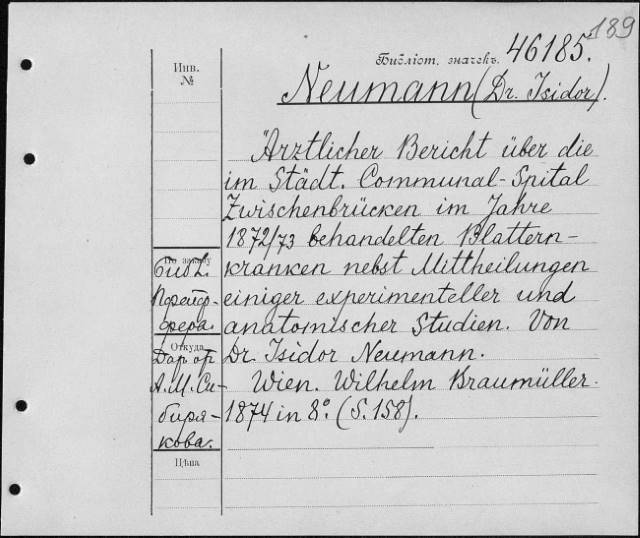 189
Библіот. значекъ. 46185.
Инв.
№
Neumann (Dr. Isidor).
Ärztlicher Bericht über die
im Städt. Communal-Spital
Zwischenbrücken im Jahre
1872/73 behandelten Blattern-
kranken nebst Mittheilungen
einiger experimenteller und
anatomischer Studien. Von
Dr. Isidor Neumann.
Wien. Wilhelm Braumüller.
1874 in 8º. (S. 158).
По заказу
Библ.
Прейф-
фера.
Откуда
Дар от
А. М. Си-
биря-
кова.
Цѣна